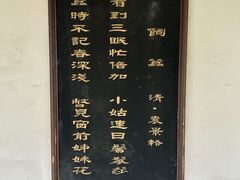 飼蠶 清·袁景輅
看到三眠忙倍加 小姑連日鬢
蠶時不記春深淺 瞥見窗前姊妹花